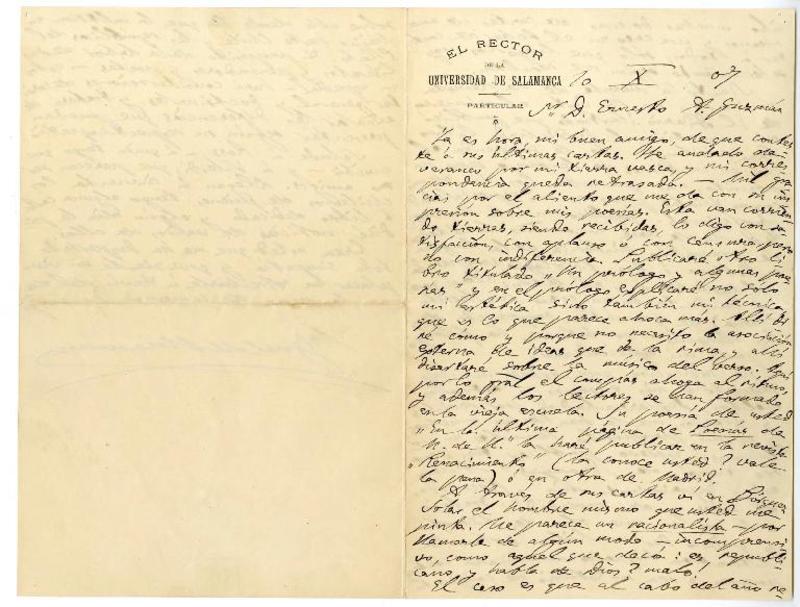 EL RECTOR
DE LA
UNIVERSIDAD DE SALAMANCA 10 X 07
PARTICULAR
Sr D. Ernesto A. Guzmán
Ya es hora, mi buen amigo, de que contes
te á sus últimas cartas. He andado de
veraneo por mi tierra vasca, y mi corres
pondencia queda retrasada. — Mil gra
cias por el aliento que me da con su im
presión sobre mis poesías. Esta van corrien
do tierras, siendo recibidas, lo digo con sa-
tisfacción, con aplauso ó con censura, pero
no con indiferencia. Publicaré otro li
bro titulado "Un prólogo y algunas poe
sías" y en el prólogo explicaré no solo
mi estética sino también mi técnica
que es lo que parece choca más. Allí di
ré cómo y porque no necesito la asociación
externa de ideas que da la rima, y allí
disertaré sobre la música del verso. Aquí
por lo gral el compas ahoga al ritmo,
y además los lectores se han formado
en la vieja escuela. Su poesía de usted
"En la última página de Poesías de
M. de U." la haré publicar en la revista
"Renacimiento" (la conoce usted? vale
la pena) ó en otra de Madrid.
A traves de sus cartas vi en Bórquez
Solar el hombre mismo que usted me
pinta. Me parece un racionalista — por
llamarle de algún modo — incomprensi
vo, como aquel que decía: es republi
cano, y habla de Dios? malo!
El caso es que al cabo del año re